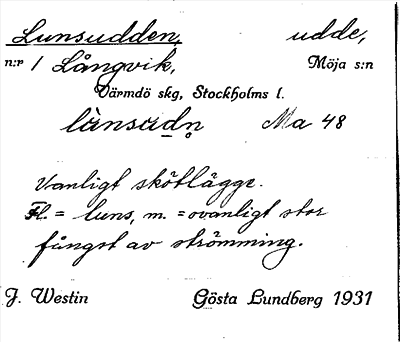 Lunsudden, udde,
n:r 1 Långvik, Möja s:n
Värmdö skg, Stockholms l.
Ma 48
Vanligt skötlägge.
Fl. = luns, m. = ovanligt stor
fångst av strömming.
J. Westin Gösta Lundberg 1931